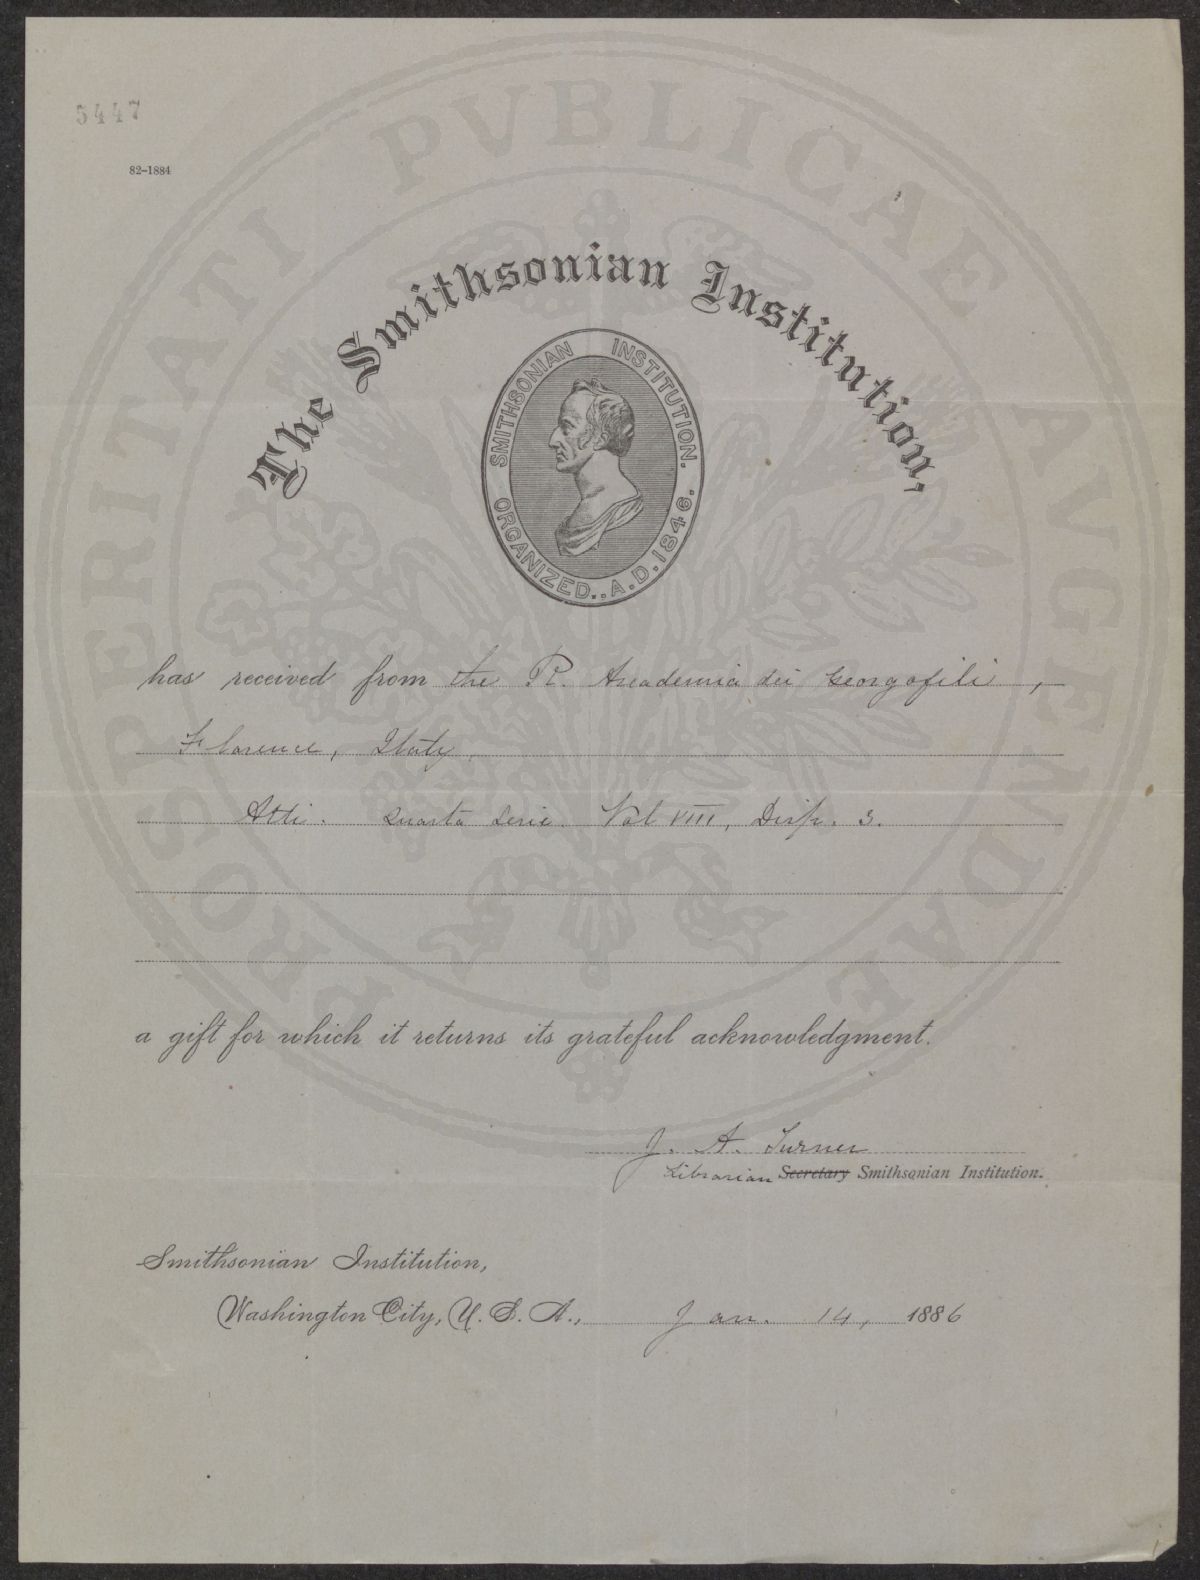 5447
82–1884
PROSPERITATI PVBLICAE AVGENDAE
The Smithsonian Institution,
SMITHSONIAN INSTITUTION.
ORGANIZED.. A.D. 1846.
has received from the R. Accademia dei Georgofili,
Florence, Italy,
Atti. Quarta Serie. Vol VIII, Disp. 3.
a gift for which it returns its grateful acknowledgment.
J. A. Turner
Librarian Secretary Smithsonian Institution.
Smithsonian Institution,
Washington City, U. S. A., Jan. 14, 1886